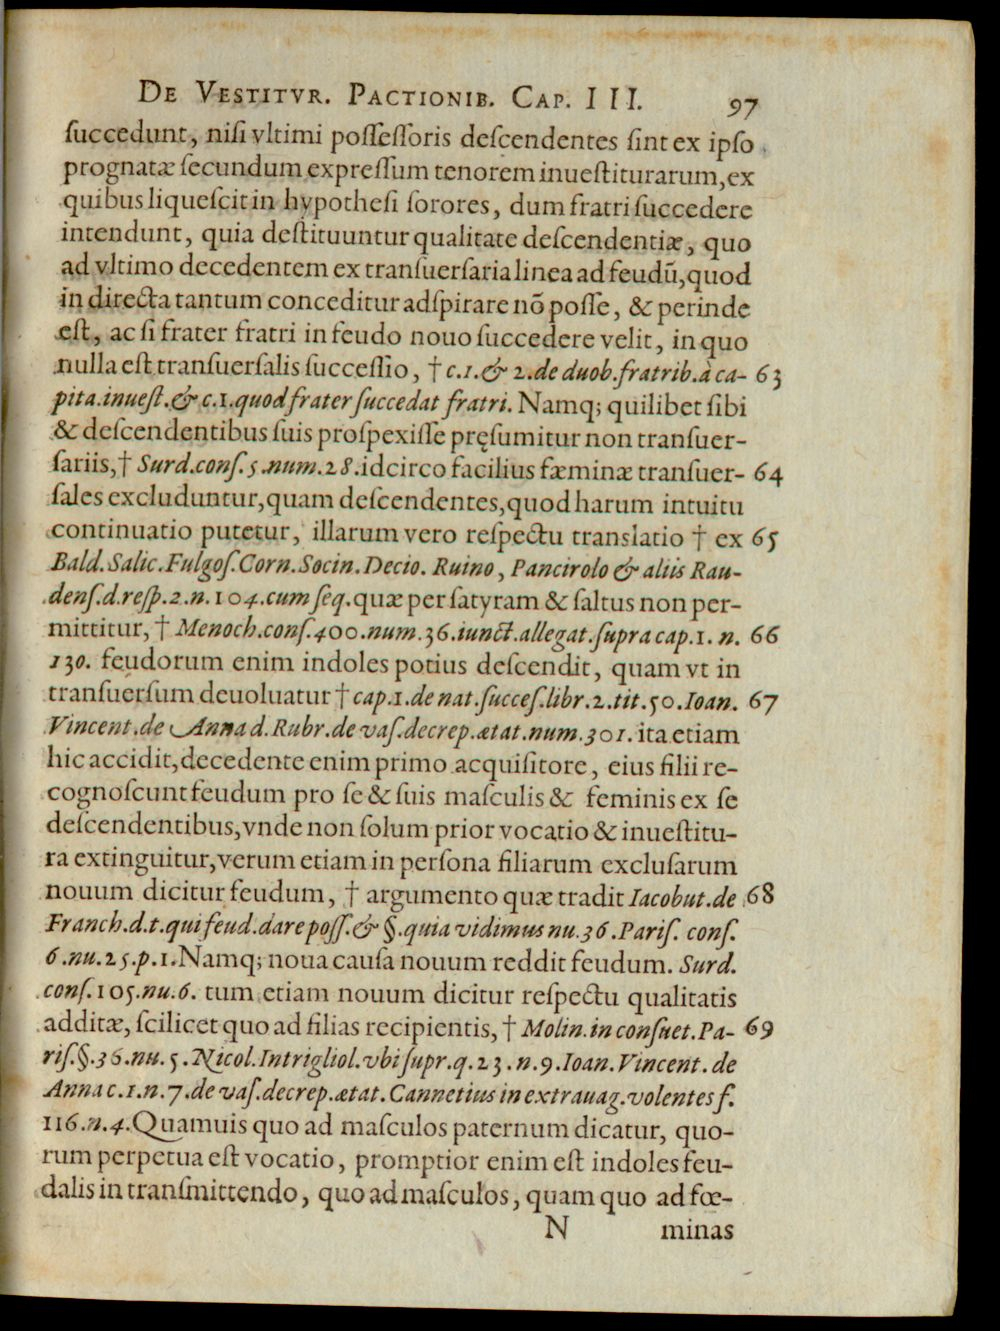 De Vestitvr. Pactionib. Cap. III. 97
ſuccedunt, niſi vltimi poſſeſſoris deſcendentes ſint ex ipſo
prognatæ ſecundum expreſſum tenorem inueſtiturarum, ex
quibus liqueſcit in hypotheſi ſorores, dum fratri ſuccedere
intendunt, quia deſtituuntur qualitate deſcendentiæ, quo
ad vltimo decedentem ex tranſuerſaria linea ad feudũ, quod
in directa tantum conceditur adſpirare nõ poſſe, & perinde
eſt, ac ſi frater fratri in feudo nouo ſuccedere velit, in quo
nulla eſt tranſuerſalis ſucceſſio, † c. 1. & 2. de duob. fratrib. à ca- 63
pita. inueſt. & c. 1. quod frater ſuccedat fratri. Namq; quilibet ſibi
& deſcendentibus ſuis proſpexiſſe pręſumitur non tranſuer-
ſariis, † Surd. conſ. 5. num. 28. idcirco facilius fæminæ tranſuer- 64
ſales excluduntur, quam deſcendentes, quod harum intuitu
continuatio putetur, illarum vero reſpectu translatio † ex 65
Bald. Salic. Fulgoſ. Corn. Socin. Decio. Ruino, Pancirolo & aliis Rau-
denſ. d. reſp. 2. n. 104. cum ſeq. quæ per ſatyram & ſaltus non per-
mittitur, † Menoch. conſ. 400. num. 36. iunct. allegat. ſupra cap. 1. n. 66
130. feudorum enim indoles potius deſcendit, quam vt in
tranſuerſum deuoluatur † cap. 1. de nat. ſucceſ. libr. 2. tit. 50. Ioan. 67
Vincent. de Anna d. Rubr. de vaſ. decrep. ætat. num. 301. ita etiam
hic accidit, decedente enim primo acquiſitore, eius filii re-
cognoſcunt feudum pro ſe & ſuis maſculis & feminis ex ſe
deſcendentibus, vnde non ſolum prior vocatio & inueſtitu-
ra extinguitur, verum etiam in perſona filiarum excluſarum
nouum dicitur feudum, † argumento quæ tradit Iacobut. de 68
Franch. d. t. qui feud. dare poſſ. & §. quia vidimus nu. 36. Pariſ. conſ.
6. nu. 25. p. 1. Namq; noua cauſa nouum reddit feudum. Surd.
conſ. 105. nu. 6. tum etiam nouum dicitur reſpectu qualitatis
additæ, ſcilicet quo ad filias recipientis, † Molin. in conſuet. Pa- 69
riſ. §. 36. nu. 5. Nicol. Intrigliol. vbi ſupr. q. 23. n. 9. Ioan. Vincent. de
Anna c. 1. n. 7. de vaſ. decrep. ætat. Cannetius in extrauag. volentes f.
116. n. 4. Quamuis quo ad maſculos paternum dicatur, quo-
rum perpetua eſt vocatio, promptior enim eſt indoles feu-
dalis in tranſmittendo, quo ad maſculos, quam quo ad fœ-
N minas